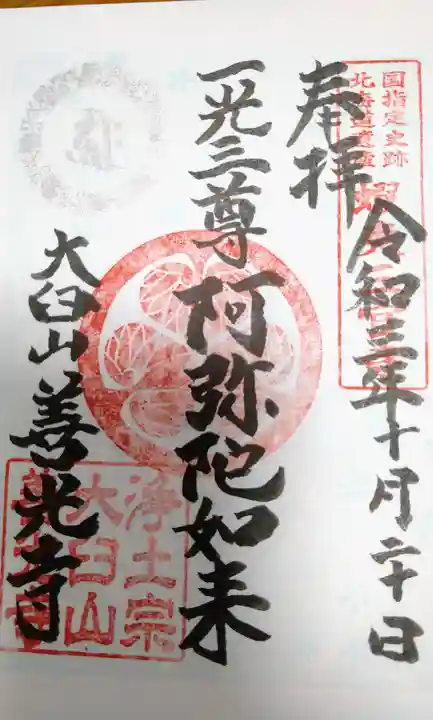 国指定史跡
北海道遺産
奉拝
令和三年十月二十日
一光三尊 阿弥陀如来
大臼山 善光寺
浄土宗
大臼山
善光寺